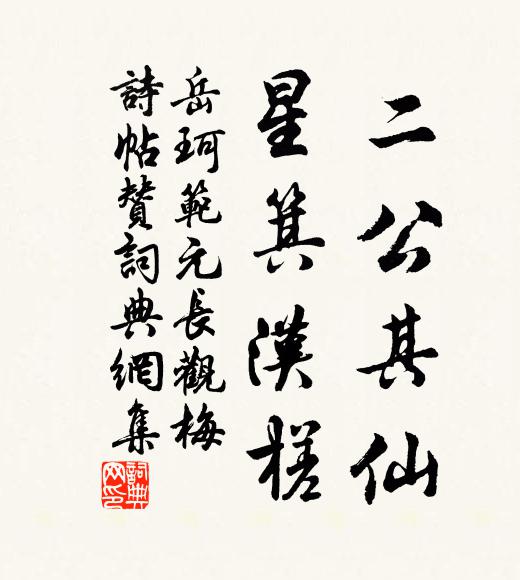 二公其仙
星箕漢槎
岳珂範元長觀梅
詩帖贊詞典網集
詞典網印